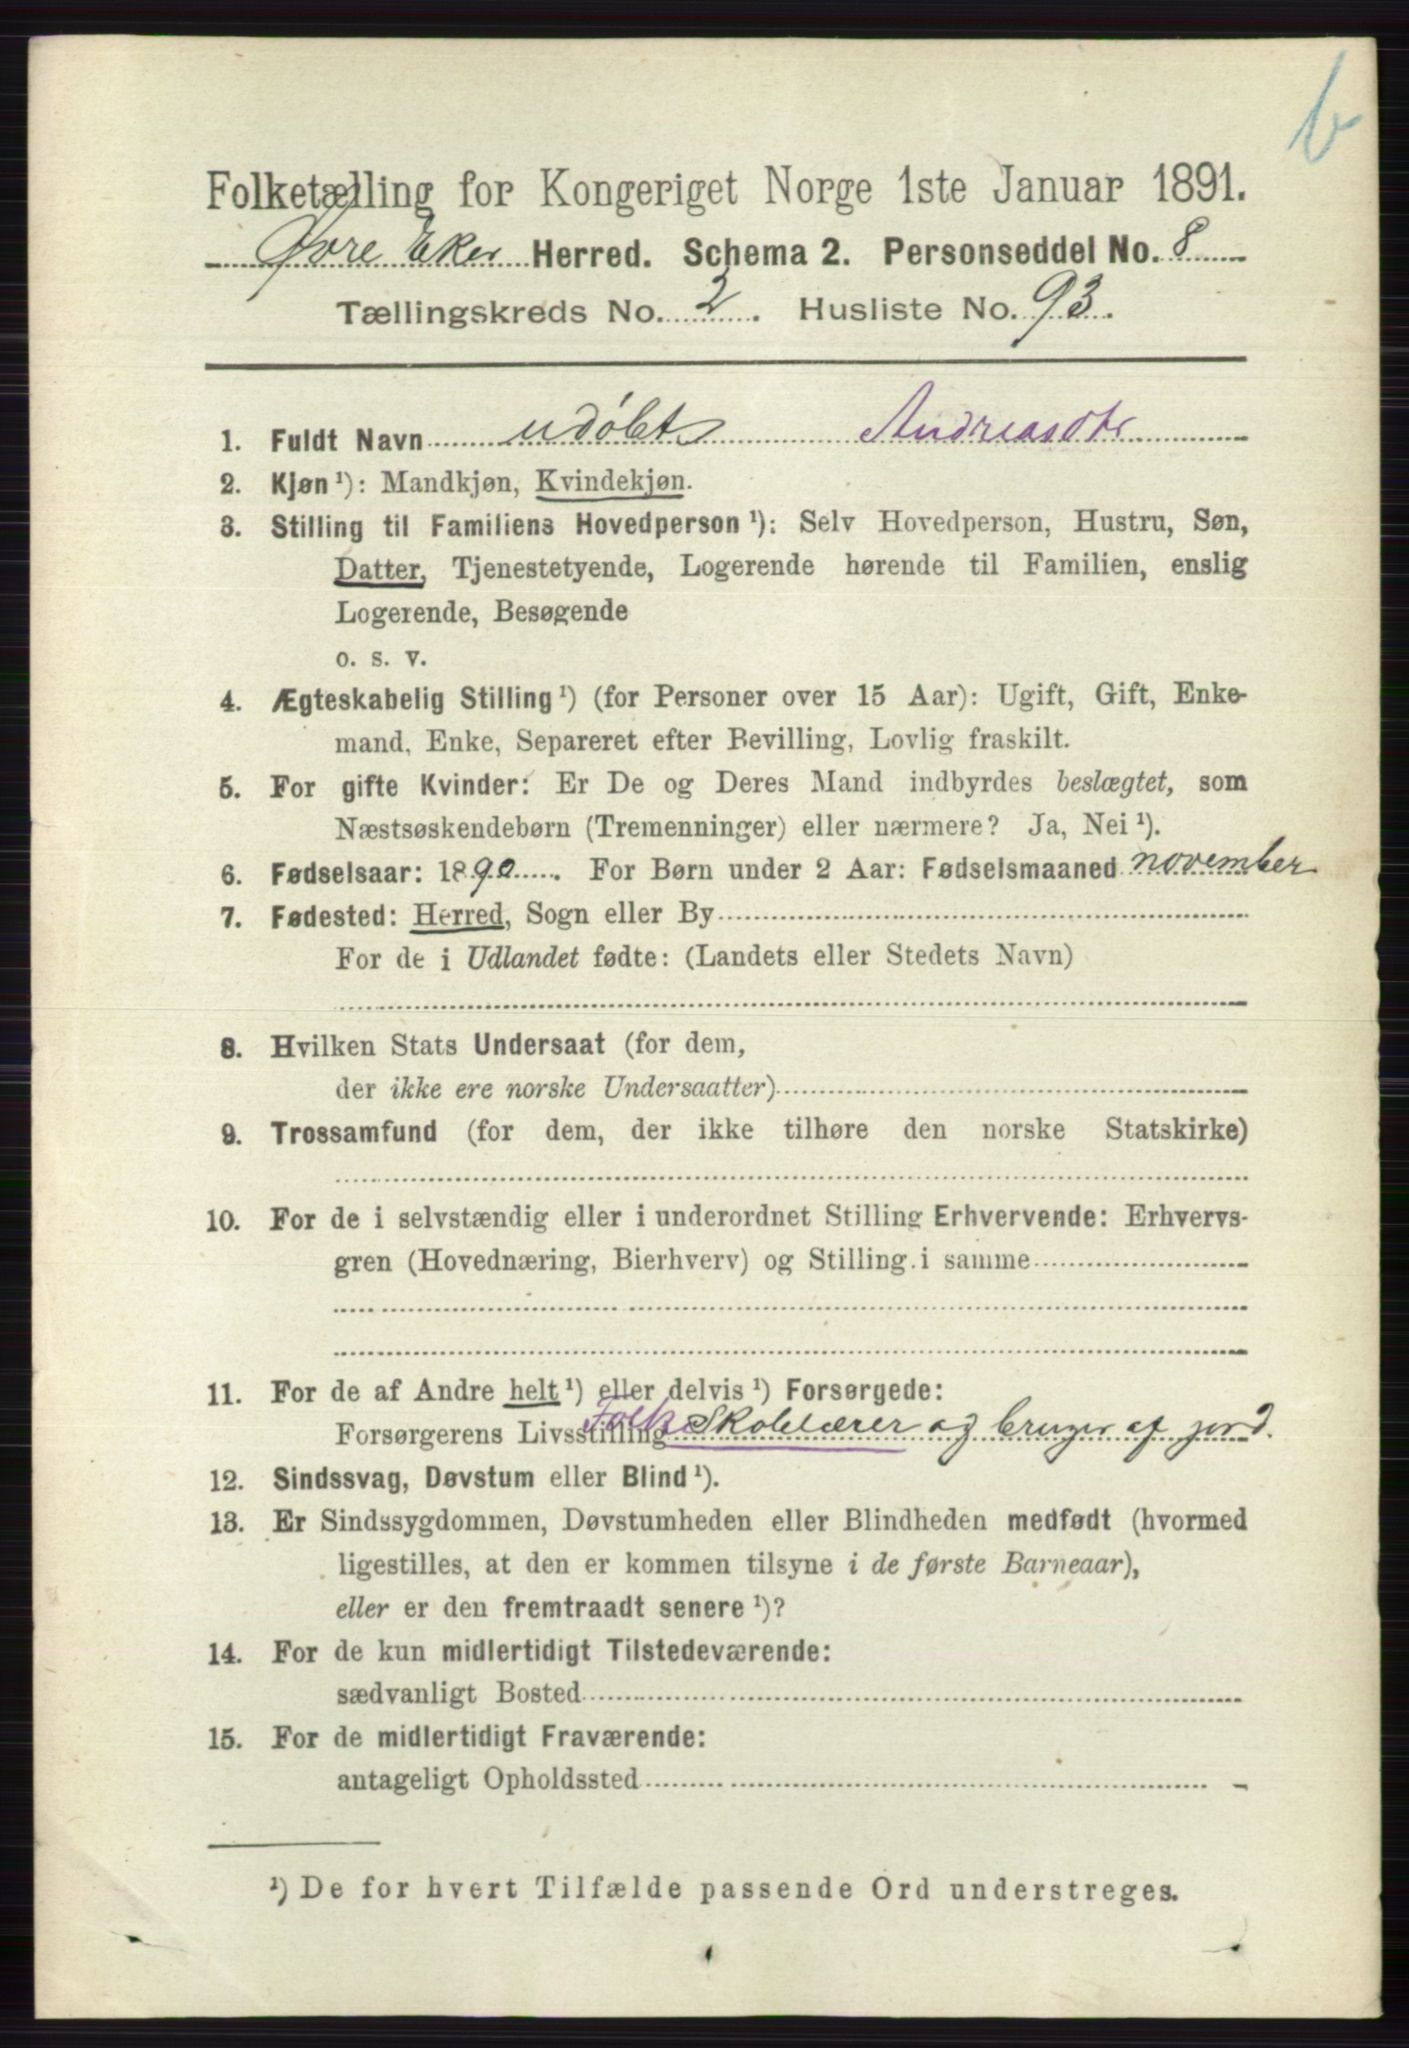 b
Folketælling for Kongeriget Norge 1ste Januar 1891.
Øvre Eker Herred. Schema 2. Personseddel No. 8
Tællingskreds No. 2. Husliste No. 93.
1. Fuldt Navn udøbt Andreasdtr
2. Kjøn ¹): Mandkjøn, Kvindekjøn.
3. Stilling til Familiens Hovedperson ¹): Selv Hovedperson, Hustru, Søn,
Datter, Tjenestetyende, Logerende hørende til Familien, enslig
Logerende, Besøgende
o. s. v.
4. Ægteskabelig Stilling ¹) (for Personer over 15 Aar): Ugift, Gift, Enke-
mand, Enke, Separeret efter Bevilling, Lovlig fraskilt.
5. For gifte Kvinder: Er De og Deres Mand indbyrdes beslægtet, som
Næstsøskendebørn (Tremenninger) eller nærmere? Ja, Nei ¹).
6. Fødselsaar: 1890. For Børn under 2 Aar: Fødselsmaaned november
7. Fødested: Herred, Sogn eller By
For de i Udlandet fødte: (Landets eller Stedets Navn)
8. Hvilken Stats Undersaat (for dem,
der ikke ere norske Undersaatter)
9. Trossamfund (for dem, der ikke tilhøre den norske Statskirke)
10. For de i selvstændig eller i underordnet Stilling Erhvervende: Erhvervs-
gren (Hovednæring, Bierhverv) og Stilling i samme
11. For de af Andre helt ¹) eller delvis ¹) Forsørgede:
Forsørgerens Livsstilling Folke Skolelærer og bruger af jord.
12. Sindssvag, Døvstum eller Blind ¹).
13. Er Sindssygdommen, Døvstumheden eller Blindheden medfødt (hvormed
ligestilles, at den er kommen tilsyne i de første Barneaar),
eller er den fremtraadt senere ¹)?
14. For de kun midlertidigt Tilstedeværende:
sædvanligt Bosted
15. For de midlertidigt Fraværende:
antageligt Opholdssted
¹) De for hvert Tilfælde passende Ord understreges.